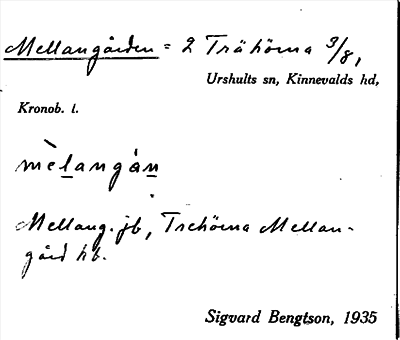 Mellangården = 2 Trähörna 3/8,
Urshults sn, Kinnevalds hd,
Kronob. l.
mèlangån
Mellang. jb, Trehörna Mellan-
gård hb.
Sigvard Bengtson, 1935